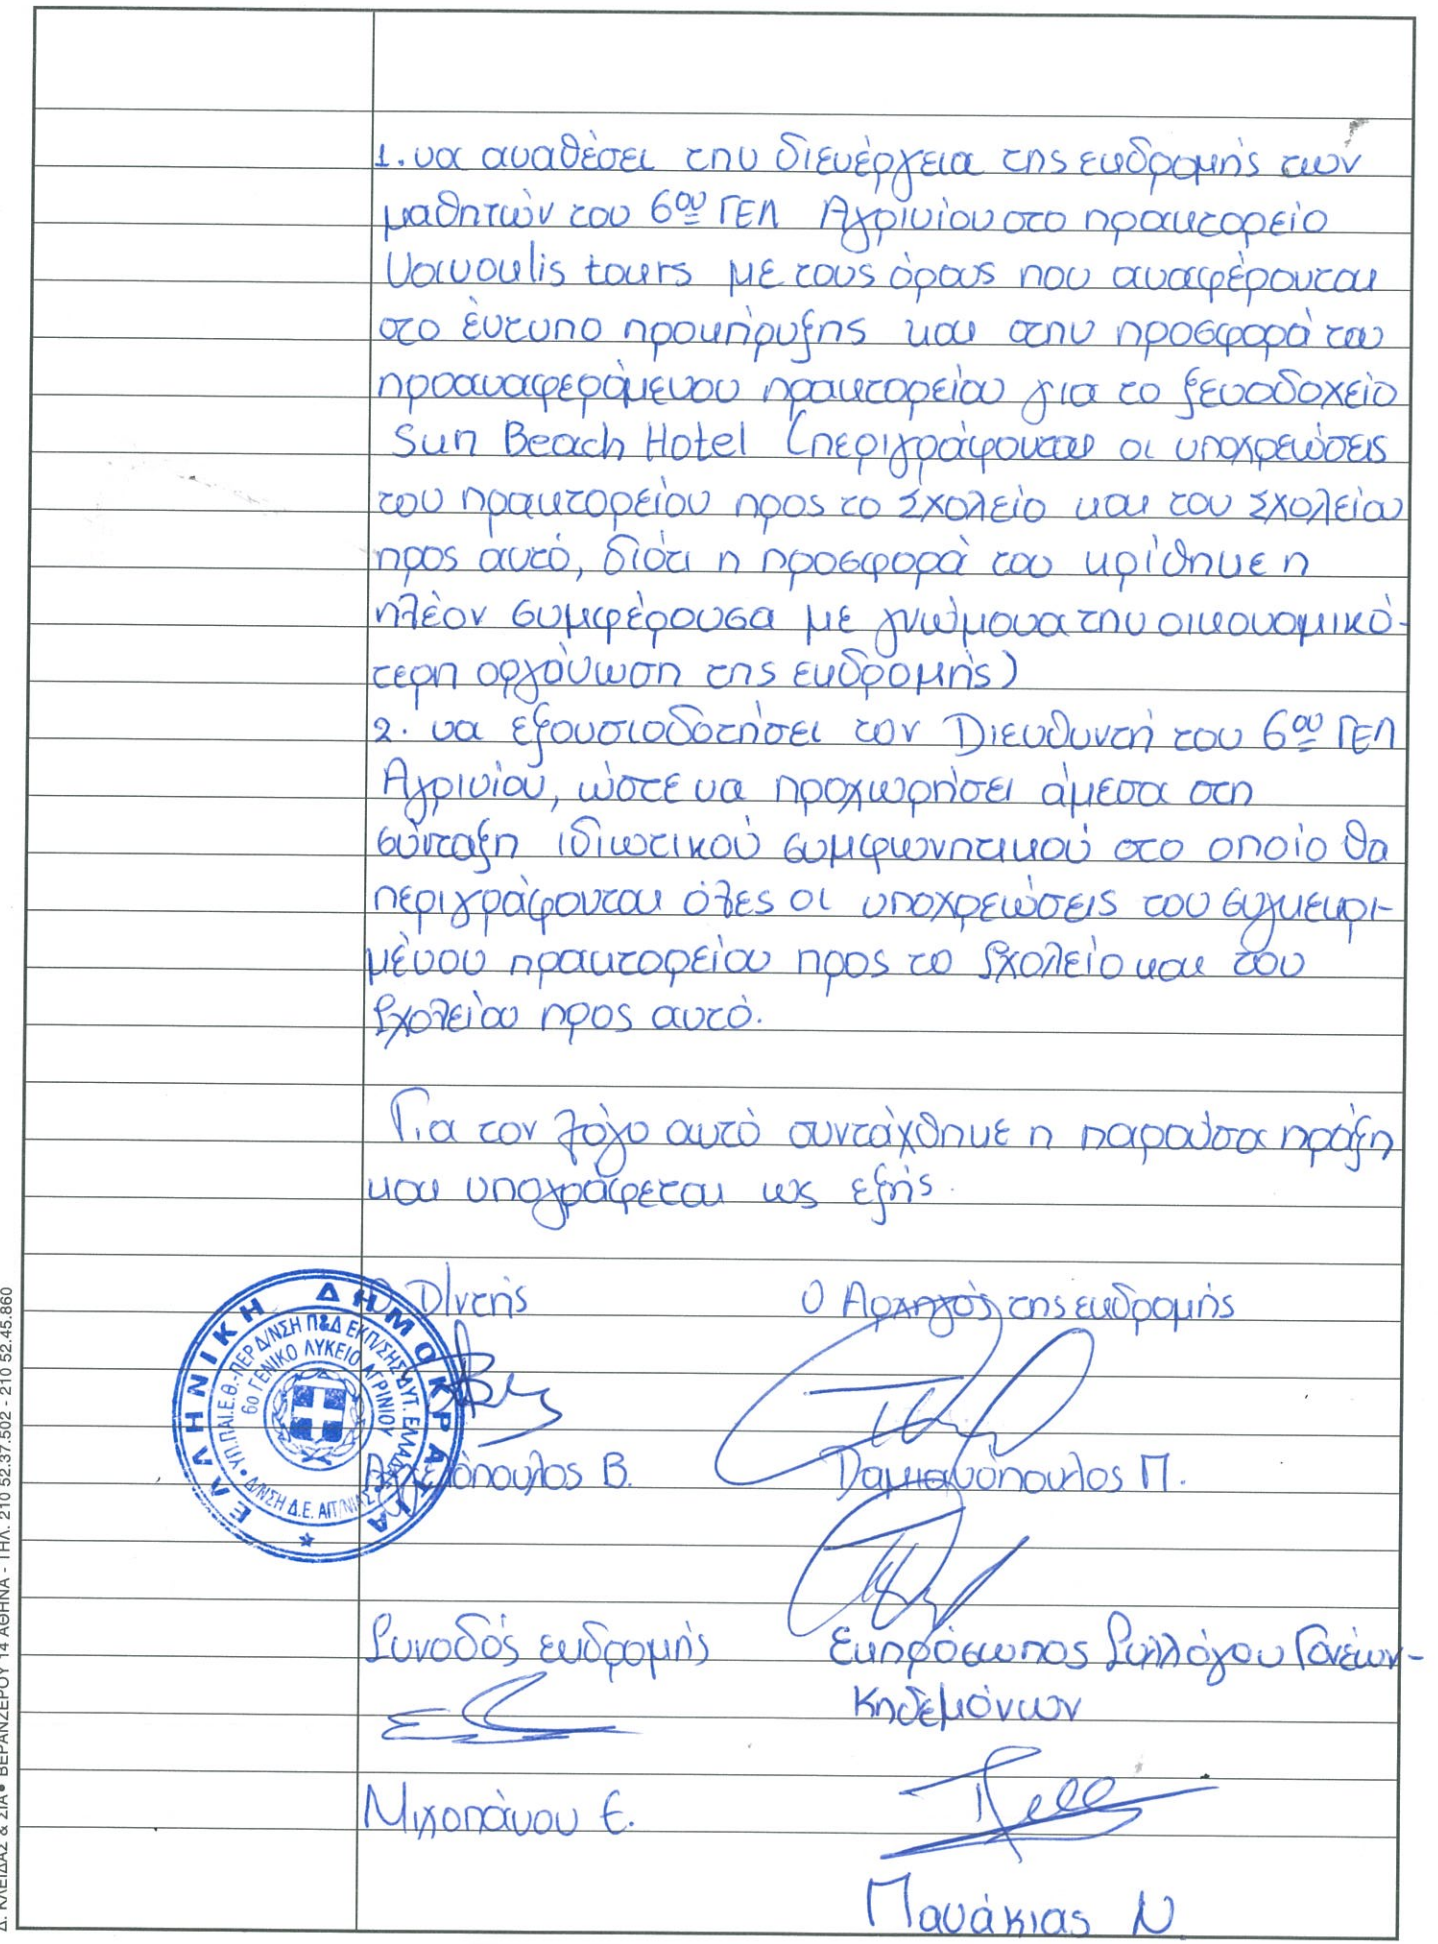 1. να αναθέσει την διενέργεια της εκδρομής των
μαθητών του 6ου ΓΕΛ Αγρινίου στο πρακτορείο
Voivoulis tours με τους όρους που αναφέρονται
στο έντυπο προκήρυξης και στην προσφορά του
προαναφερόμενου πρακτορείου για το ξενοδοχείο
Sun Beach Hotel (περιγράφονται οι υποχρεώσεις
του πρακτορείου προς το Σχολείο και του Σχολείου
προς αυτό, διότι η προσφορά του κρίθηκε η
πλέον συμφέρουσα με γνώμονα την οικονομικό-
τερη οργάνωση της εκδρομής)
2. να εξουσιοδοτήσει τον Διευθυντή του 6ου ΓΕΛ
Αγρινίου, ώστε να προχωρήσει άμεσα στη
σύνταξη ιδιωτικού συμφωνητικού στο οποίο θα
περιγράφονται όλες οι υποχρεώσεις του συγκεκρι-
μένου πρακτορείου προς το Σχολείο και του
Σχολείου προς αυτό.
Για τον λόγο αυτό συντάχθηκε η παρούσα πράξη
και υπογράφεται ως εξής.
Ο Δ/ντής Ο Αρχηγός της εκδρομής
ΕΛΛΗΝΙΚΗ ΔΗΜΟΚΡΑΤΙΑ
ΥΠ.ΠΑΙ.Ε.Θ.-ΠΕΡ Δ/ΝΣΗ Π&Δ ΕΚΠ/ΣΗΣ ΔΥΤ. ΕΛΛΑΔΑΣ
Δ/ΝΣΗ Δ.Ε. ΑΙΤ/ΝΙΑΣ
6ο ΓΕΝΙΚΟ ΛΥΚΕΙΟ ΑΓΡΙΝΙΟΥ
Β. Δαμιανόπουλος Π.
Συνοδός εκδρομής Εκπρόσωπος Συλλόγου Γονέων-
Κηδεμόνων
Μιχοπάνου Ε.
Πανάκιας Ν
Δ. ΚΛΕΙΔΑΣ & ΣΙΑ • ΒΕΡΑΝΖΕΡΟΥ 14 ΑΘΗΝΑ - ΤΗΛ. 210 52.37.502 - 210 52.45.860